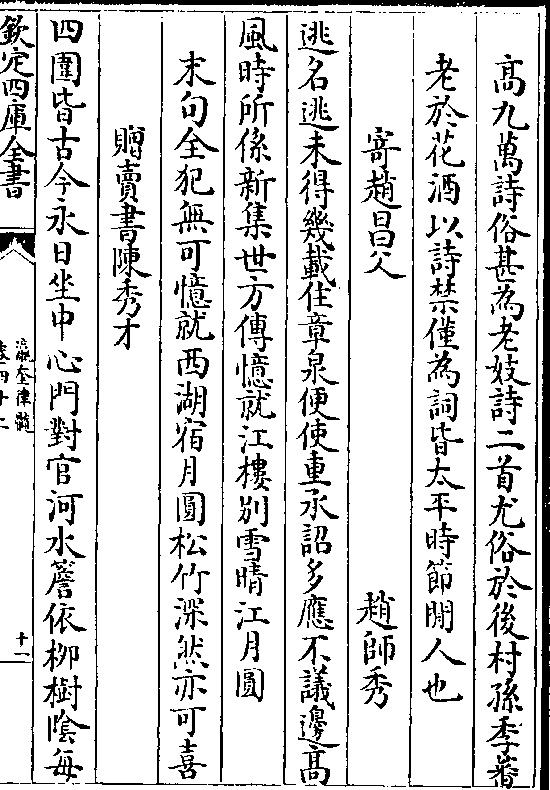 高九萬詩俗甚為老妓詩二首尤俗於後村孫季蕃
老於花酒以詩禁僅為詞皆太平時節閒人也
寄趙昌父 趙師秀
逃名逃未得幾載住章泉便使重承詔多應不議邊高
風時所係新集世方傳憶就江樓别雪晴江月圓
末句全犯無可憶就西湖宿月圓松竹深然亦可喜
贈賣書陳秀才
四圍皆古今永日坐中心門對官河水簷依柳樹陰每
欽定四庫全書
瀛奎律髓
卷四十二
十一